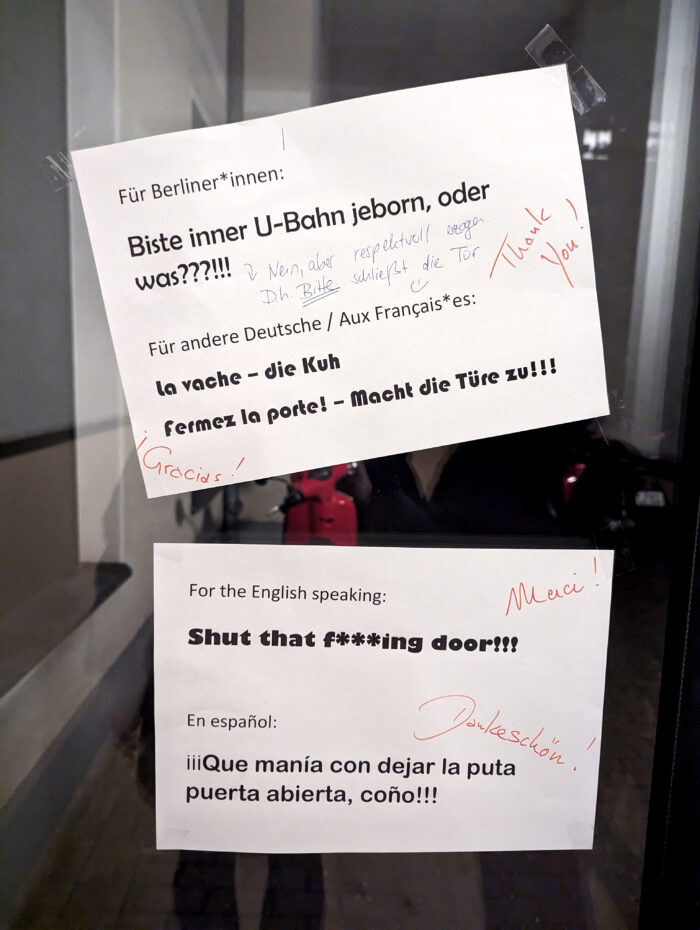 Für Berliner*innen:
Biste inner U-Bahn jeborn, oder
was???!!!
Nein, aber respektvoll erzogen
D.h. Bitte schließt die Tür
Thank
You!
Für andere Deutsche / Aux Français*es:
La vache – die Kuh
Fermez la porte! – Macht die Türe zu!!!
¡Gracias!
For the English speaking:
Merci!
Shut that f***ing door!!!
En español:
Dankeschön!
¡¡¡Que manía con dejar la puta
puerta abierta, coño!!!